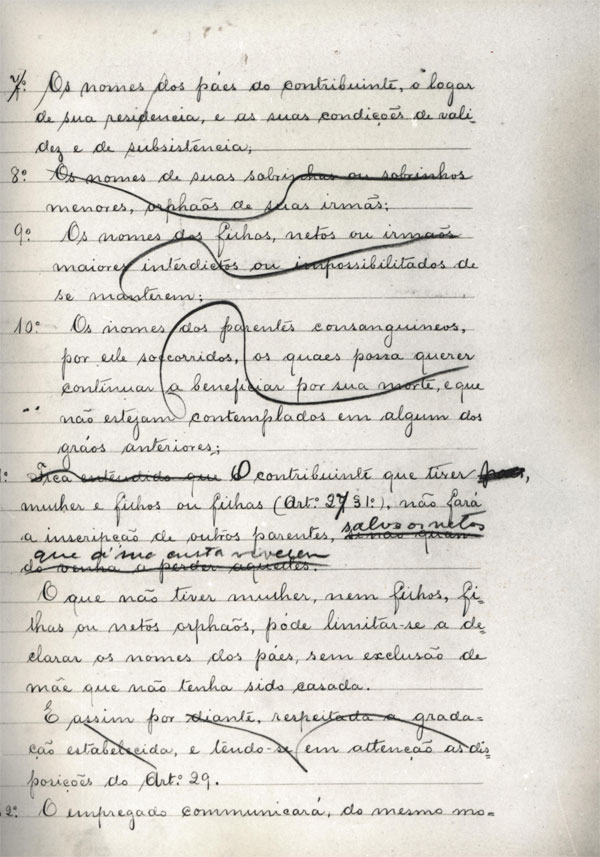 7º Os nomes dos páes do contribuinte, o logar
de sua residencia, e as suas condições de vali-
dez e de subsistencia;
8º Os nomes de suas sobrinhas ou sobrinhos
menores, orphaõs de suas irmãs;
9º Os nomes dos filhos, netos ou irmaõs
maiores interdictos ou impossibilitados de
se manterem;
10º Os nomes dos parentes consanguineos,
por elle soccorridos, os quaes possa querer
continuar a beneficiar por sua morte, e que
não estejam contemplados em algum dos
gráos anteriores;
Fica entendido que O contribuinte que tiver
mulher e filhos ou filhas (Art.º 27 § 1º), não fará
a inscripção de outros parentes, salvo os netos
que á sua custa viverem
senão quan
do venha a perder aquelles.
O que não tiver mulher, nem filhos, fi-
lhas ou netos orphaõs, póde limitar-se a de-
clarar os nomes dos páes, sem exclusão de
mãe que não tenha sido casada.
E assim por diante, respeitada a grada-
ção estabelecida, e tendo-se em attenção as dis-
posições do Art.º 29.
2º O empregado communicará, do mesmo mo-